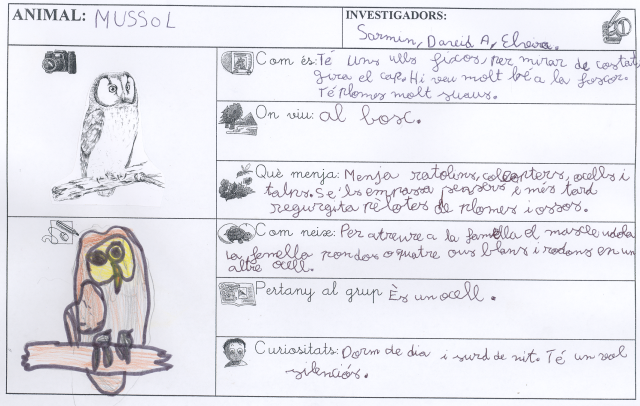 ANIMAL: MUSSOL
INVESTIGADORS:
Sarmin, David A, Elvira.
Com és: Té uns ulls fixos, per mirar de costat
gira el cap. Hi veu molt bé a la foscor.
Té plomes molt suaus.
On viu: al bosc.
Què menja: Menja ratolins, coleopters, ocells i
talps. Se'ls empassa sencers i més tard
regurgita pelotes de plomes i ossos.
Com neix: Per atreure a la famella el mascle udola
La femella pon dos o quatre ous blans i rodons en un
altre ocell.
Pertany al grup És un ocell.
Curiositats: Dorm de dia i surd de nit. Té un vol
silenciós.